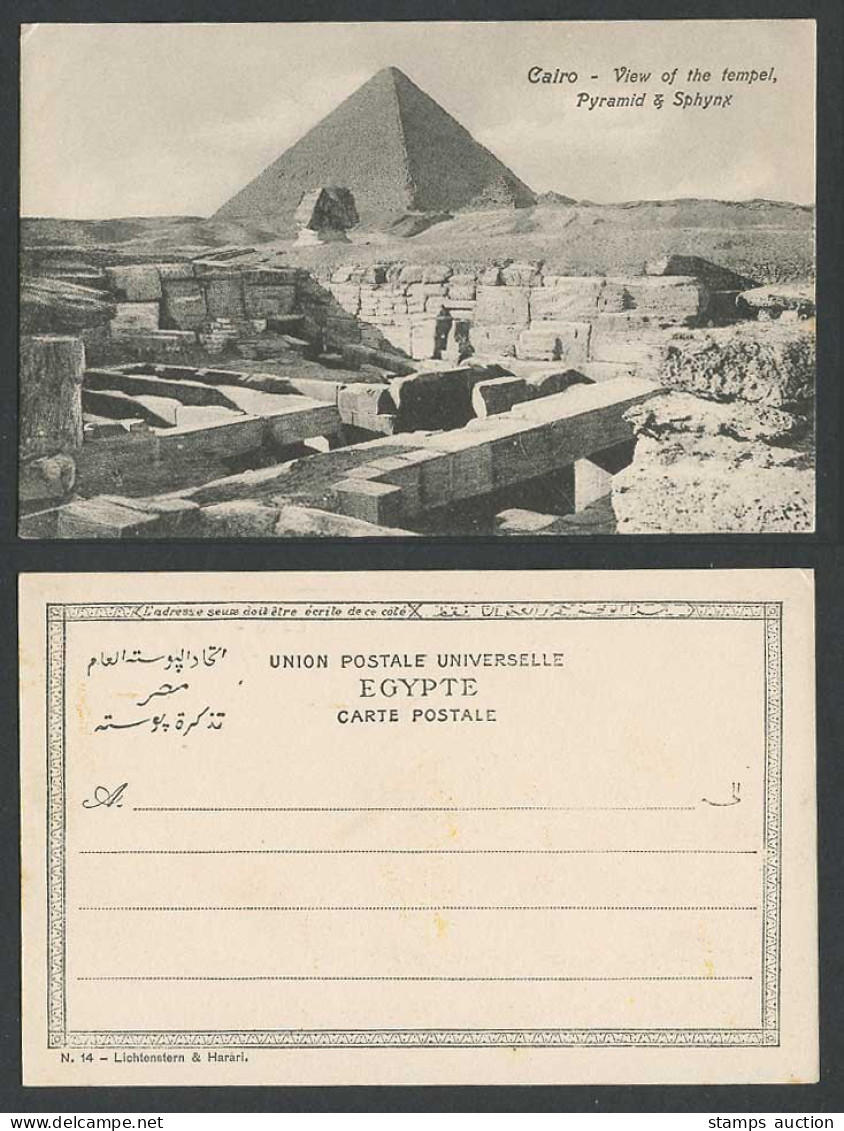 Cairo - View of the tempel,
Pyramid & Sphynx
L'adresse seule doit être écrite de ce côté
اتحاد البوسته العام
مصر
تذكرة بوسته
UNION POSTALE UNIVERSELLE
EGYPTE
CARTE POSTALE
A.
الى
N. 14 – Lichtenstern & Harari.
stamps auction